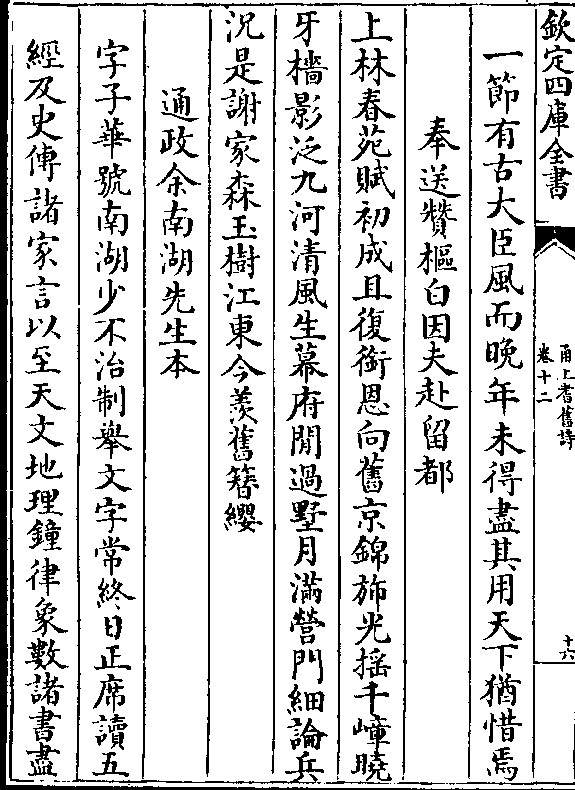 欽定四庫全書
甬上耆舊詩
卷十二
十六
一節有古大臣風而晚年未得盡其用天下猶惜焉
奉送贊樞白因夫赴留都
上林春苑賦初成且復銜恩向舊京錦斾光摇千嶂曉
牙檣影泛九河清風生幕府閒過墅月滿營門細論兵
况是謝家森玉樹江東今羨舊簪纓
通政余南湖先生本
字子華號南湖少不治制舉文字常終日正席讀五
經及史傳諸家言以至天文地理鐘律象數諸書盡